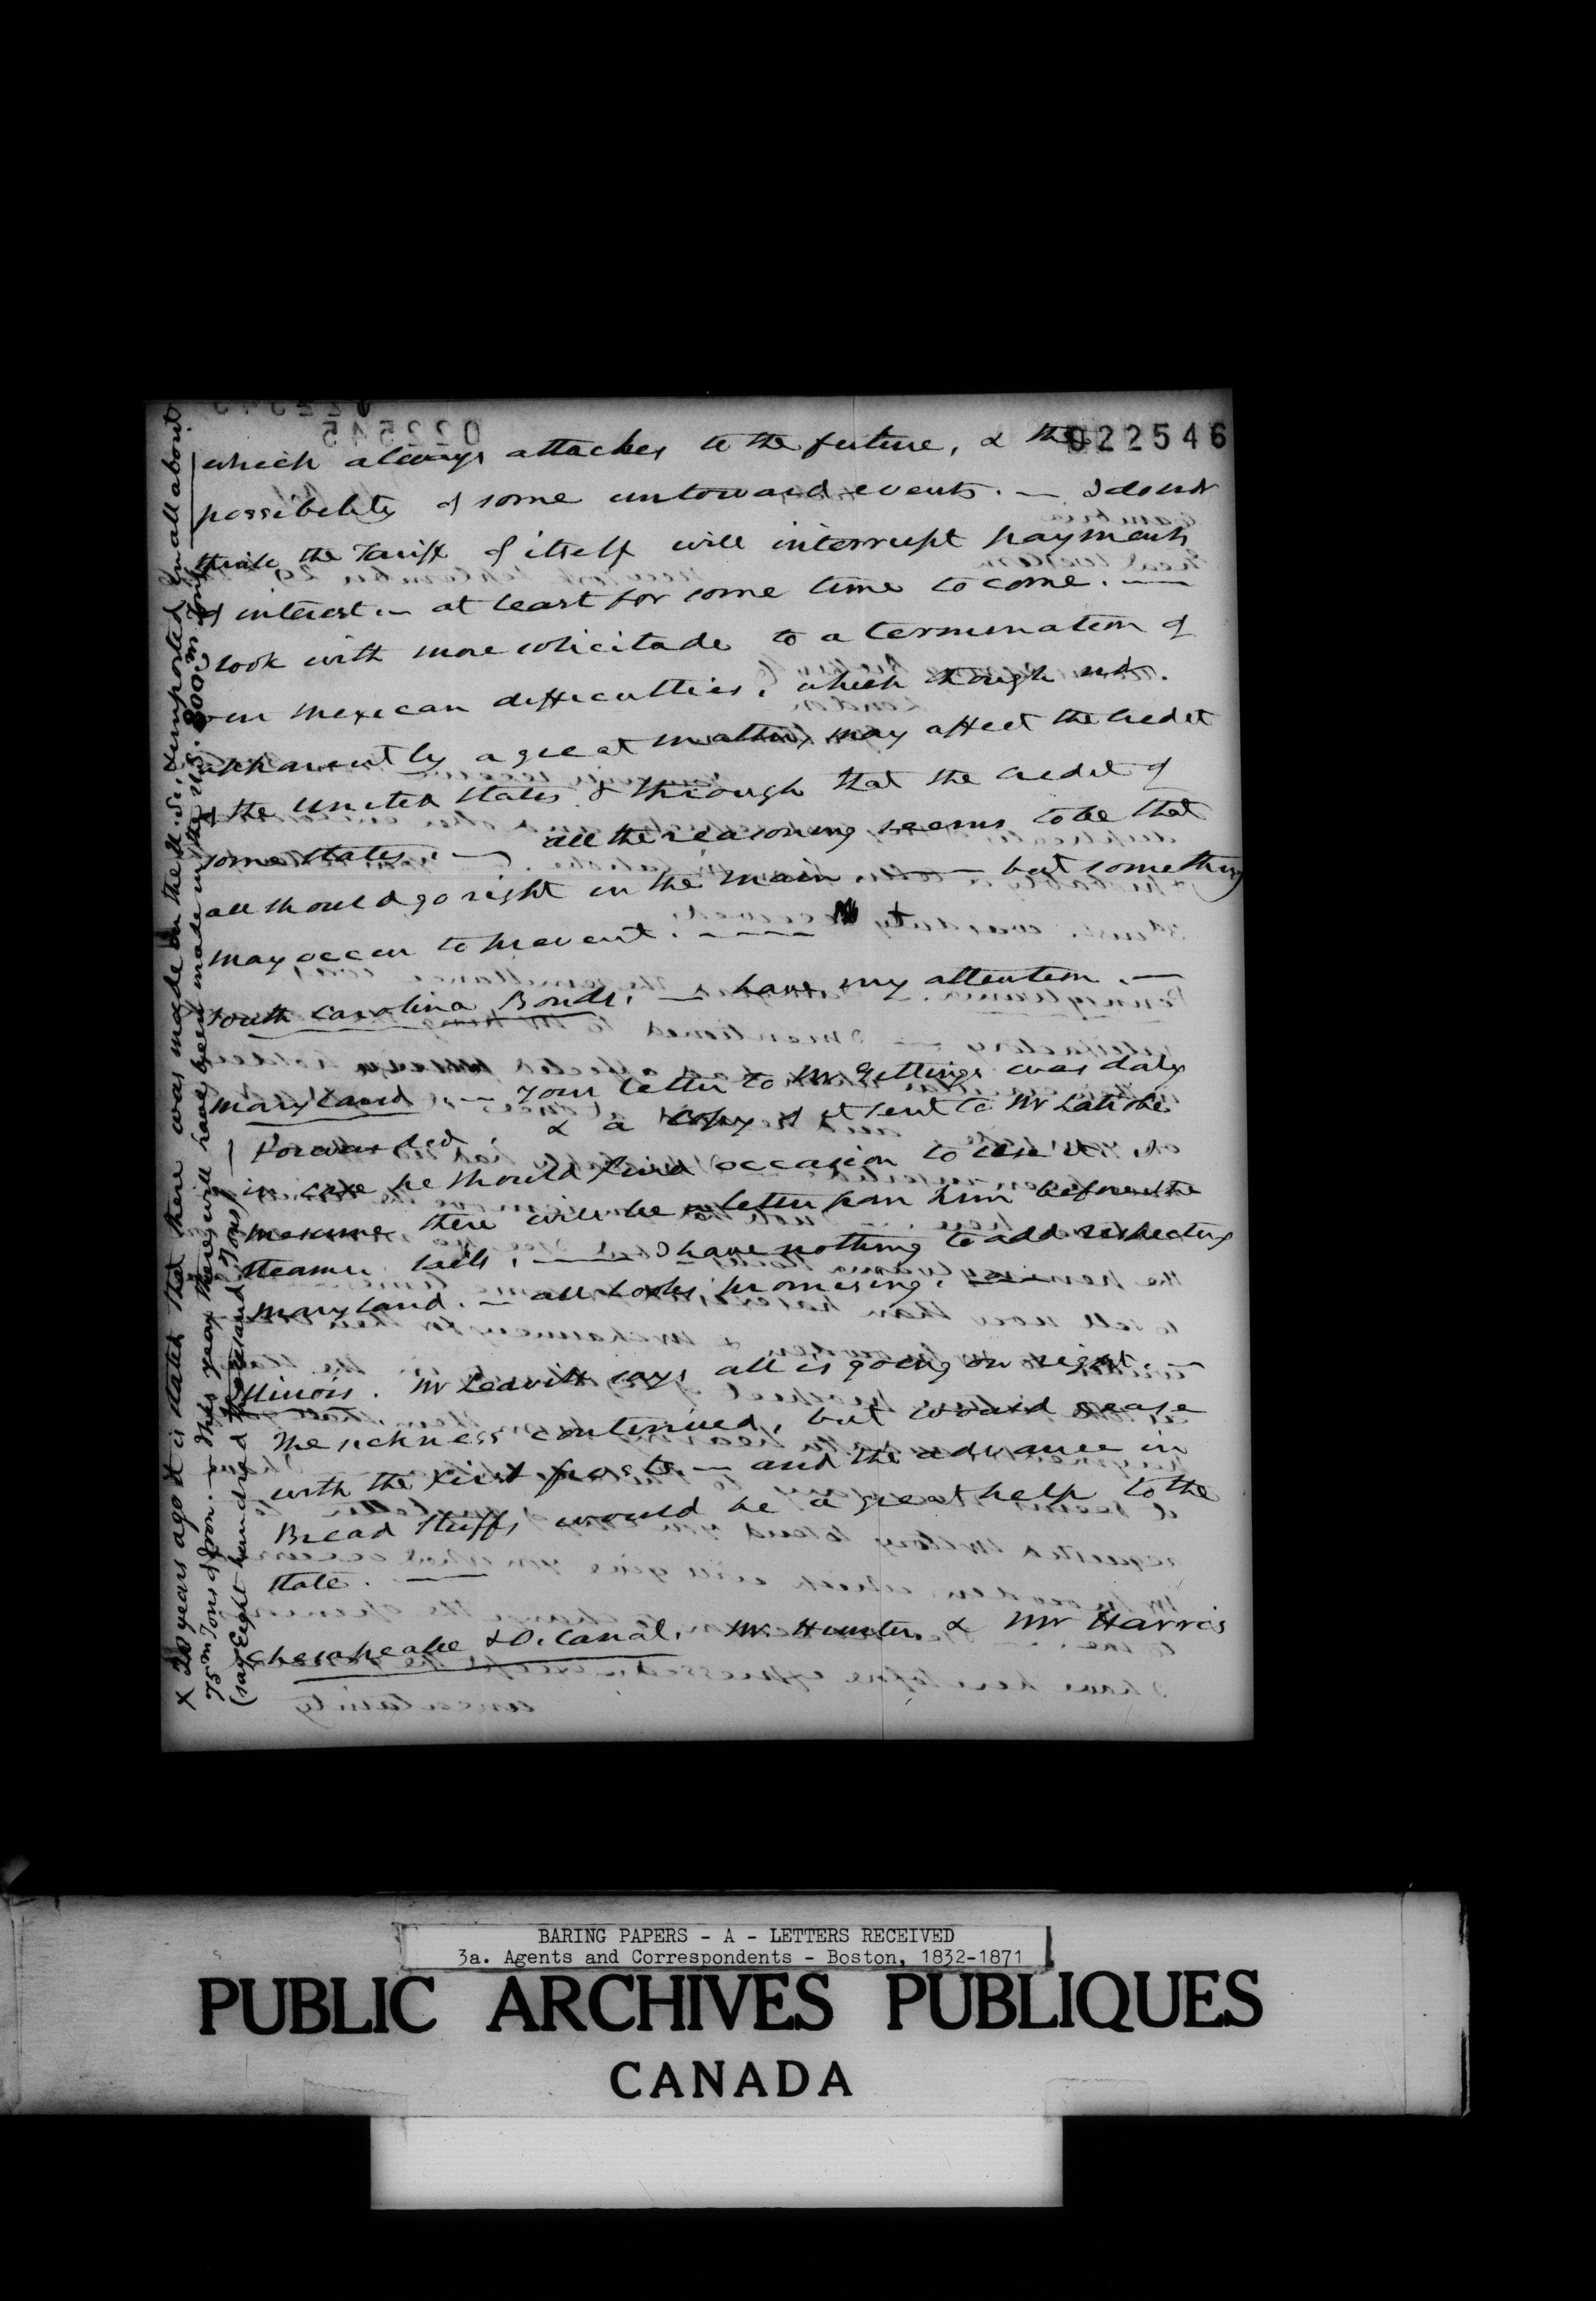 022546
which always attaches to the future, & the
possibility of some untoward events. — I do not
think the Tariff of itself will interrupt payments
of interest. — at least for some time to come. —
I look with more solicitude to a termination of
our Mexican difficulties, which though not
apparently a great matter, may affect the credit
of the United States & through that the credit of
some States. — all the reasoning seems to be that
all should go right in the main, — but something
may occur to prevent. — +
South Carolina Bonds. — have my attention. —
Maryland — Your letter to Mr Gittings was duly
forwarded, & a copy of it sent to Mr Latrobe
in case he should find occasion to use it. I
presume there will be a letter from him before the
steamer sails, — I have nothing to add respecting
Maryland. — all looks promising. —
Illinois. Mr Leavitt says all is going on right. —
The sickness continued, but would cease
with the first frosts — and the advance in
Bread Stuffs would be a great help to the
State. —
Chesapeake & O. Canal. Mr Hunter & Mr Harris
X 20 years ago it is stated that there was made in the U.S. & imported in all about
75 m Tons of Iron. — This year there will have been made in the U.S. 800 m Tons
(say Eight hundred thousand Tons) —
BARING PAPERS - A - LETTERS RECEIVED
3a. Agents and Correspondents - Boston, 1832-1871
PUBLIC ARCHIVES PUBLIQUES
CANADA